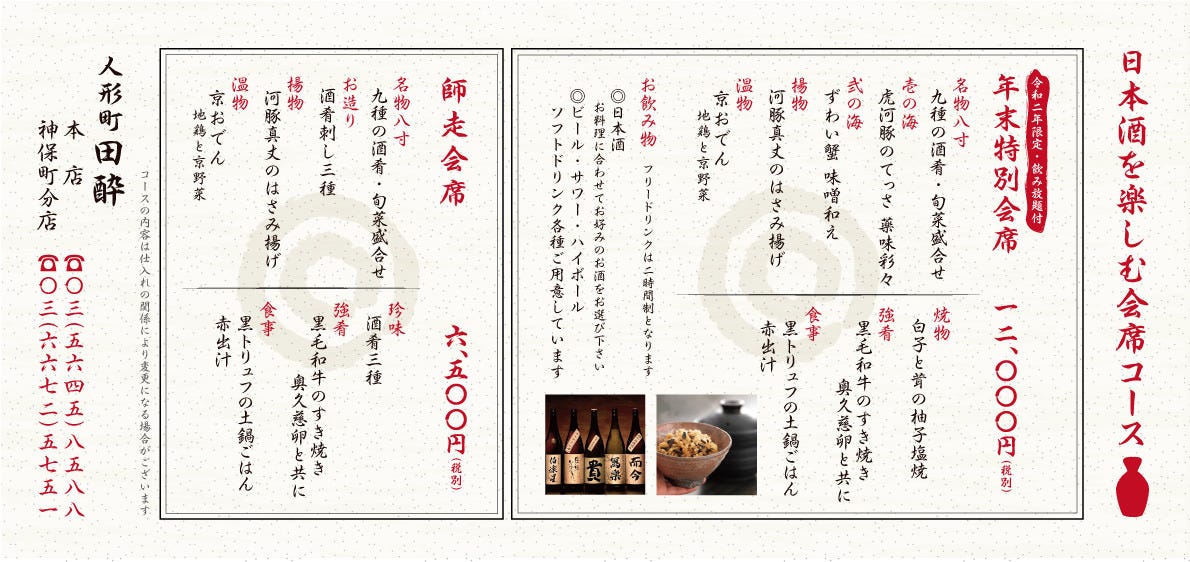 日本酒を楽しむ会席コース
令和二年限定・飲み放題付
年末特別会席 一二、〇〇〇円(税別)
名物八寸
九種の酒肴・旬菜盛合せ
壱の海
虎河豚のてっさ 薬味彩々
弐の海
ずわい蟹 味噌和え
揚物
河豚真丈のはさみ揚げ
温物
京おでん
地鶏と京野菜
焼物
白子と茸の柚子塩焼
強肴
黒毛和牛のすき焼き
奥久慈卵と共に
食事
黒トリュフの土鍋ごはん
赤出汁
お飲み物 フリードリンクは二時間制となります
◎日本酒
お料理に合わせてお好みのお酒をお選び下さい
◎ビール・サワー・ハイボール
ソフトドリンク各種ご用意しています
而今
寫樂
貴
師走会席 六、五〇〇円(税別)
名物八寸
九種の酒肴・旬菜盛合せ
お造り
酒肴刺し三種
揚物
河豚真丈のはさみ揚げ
温物
京おでん
地鶏と京野菜
珍味
酒肴三種
強肴
黒毛和牛のすき焼き
奥久慈卵と共に
食事
黒トリュフの土鍋ごはん
赤出汁
コースの内容は仕入れの関係により変更になる場合がございます
人形町田酔
本店 ☎〇三(五六四五)八五八八
神保町分店 ☎〇三(六六七二)五七五一